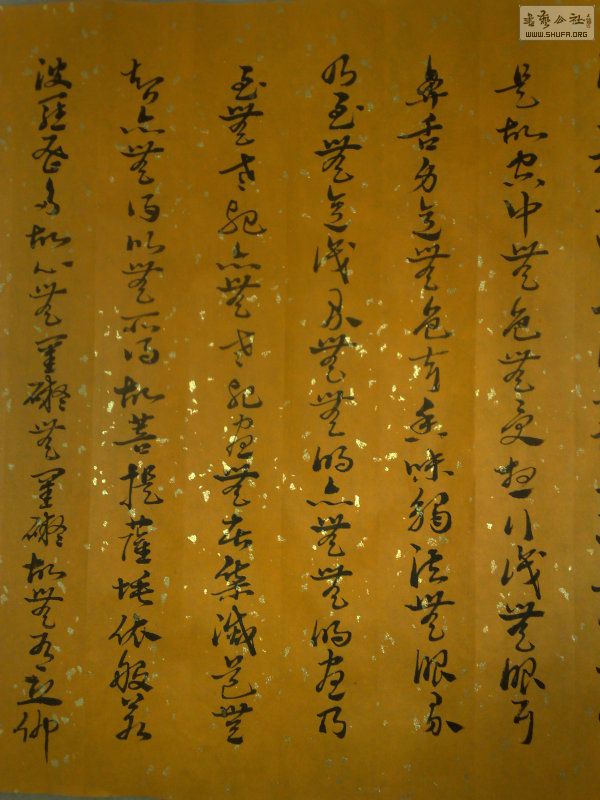 是故空中無色無受想行識無眼耳
鼻舌身意無色聲香味觸法無眼界
乃至無意識界無無明亦無無明盡乃
至無老死亦無老死盡無苦集滅道無
智亦無得以無所得故菩提薩埵依般若
波羅蜜多故心無罣礙無罣礙故無有恐怖
書藝公社
WWW.SHUFA.ORG